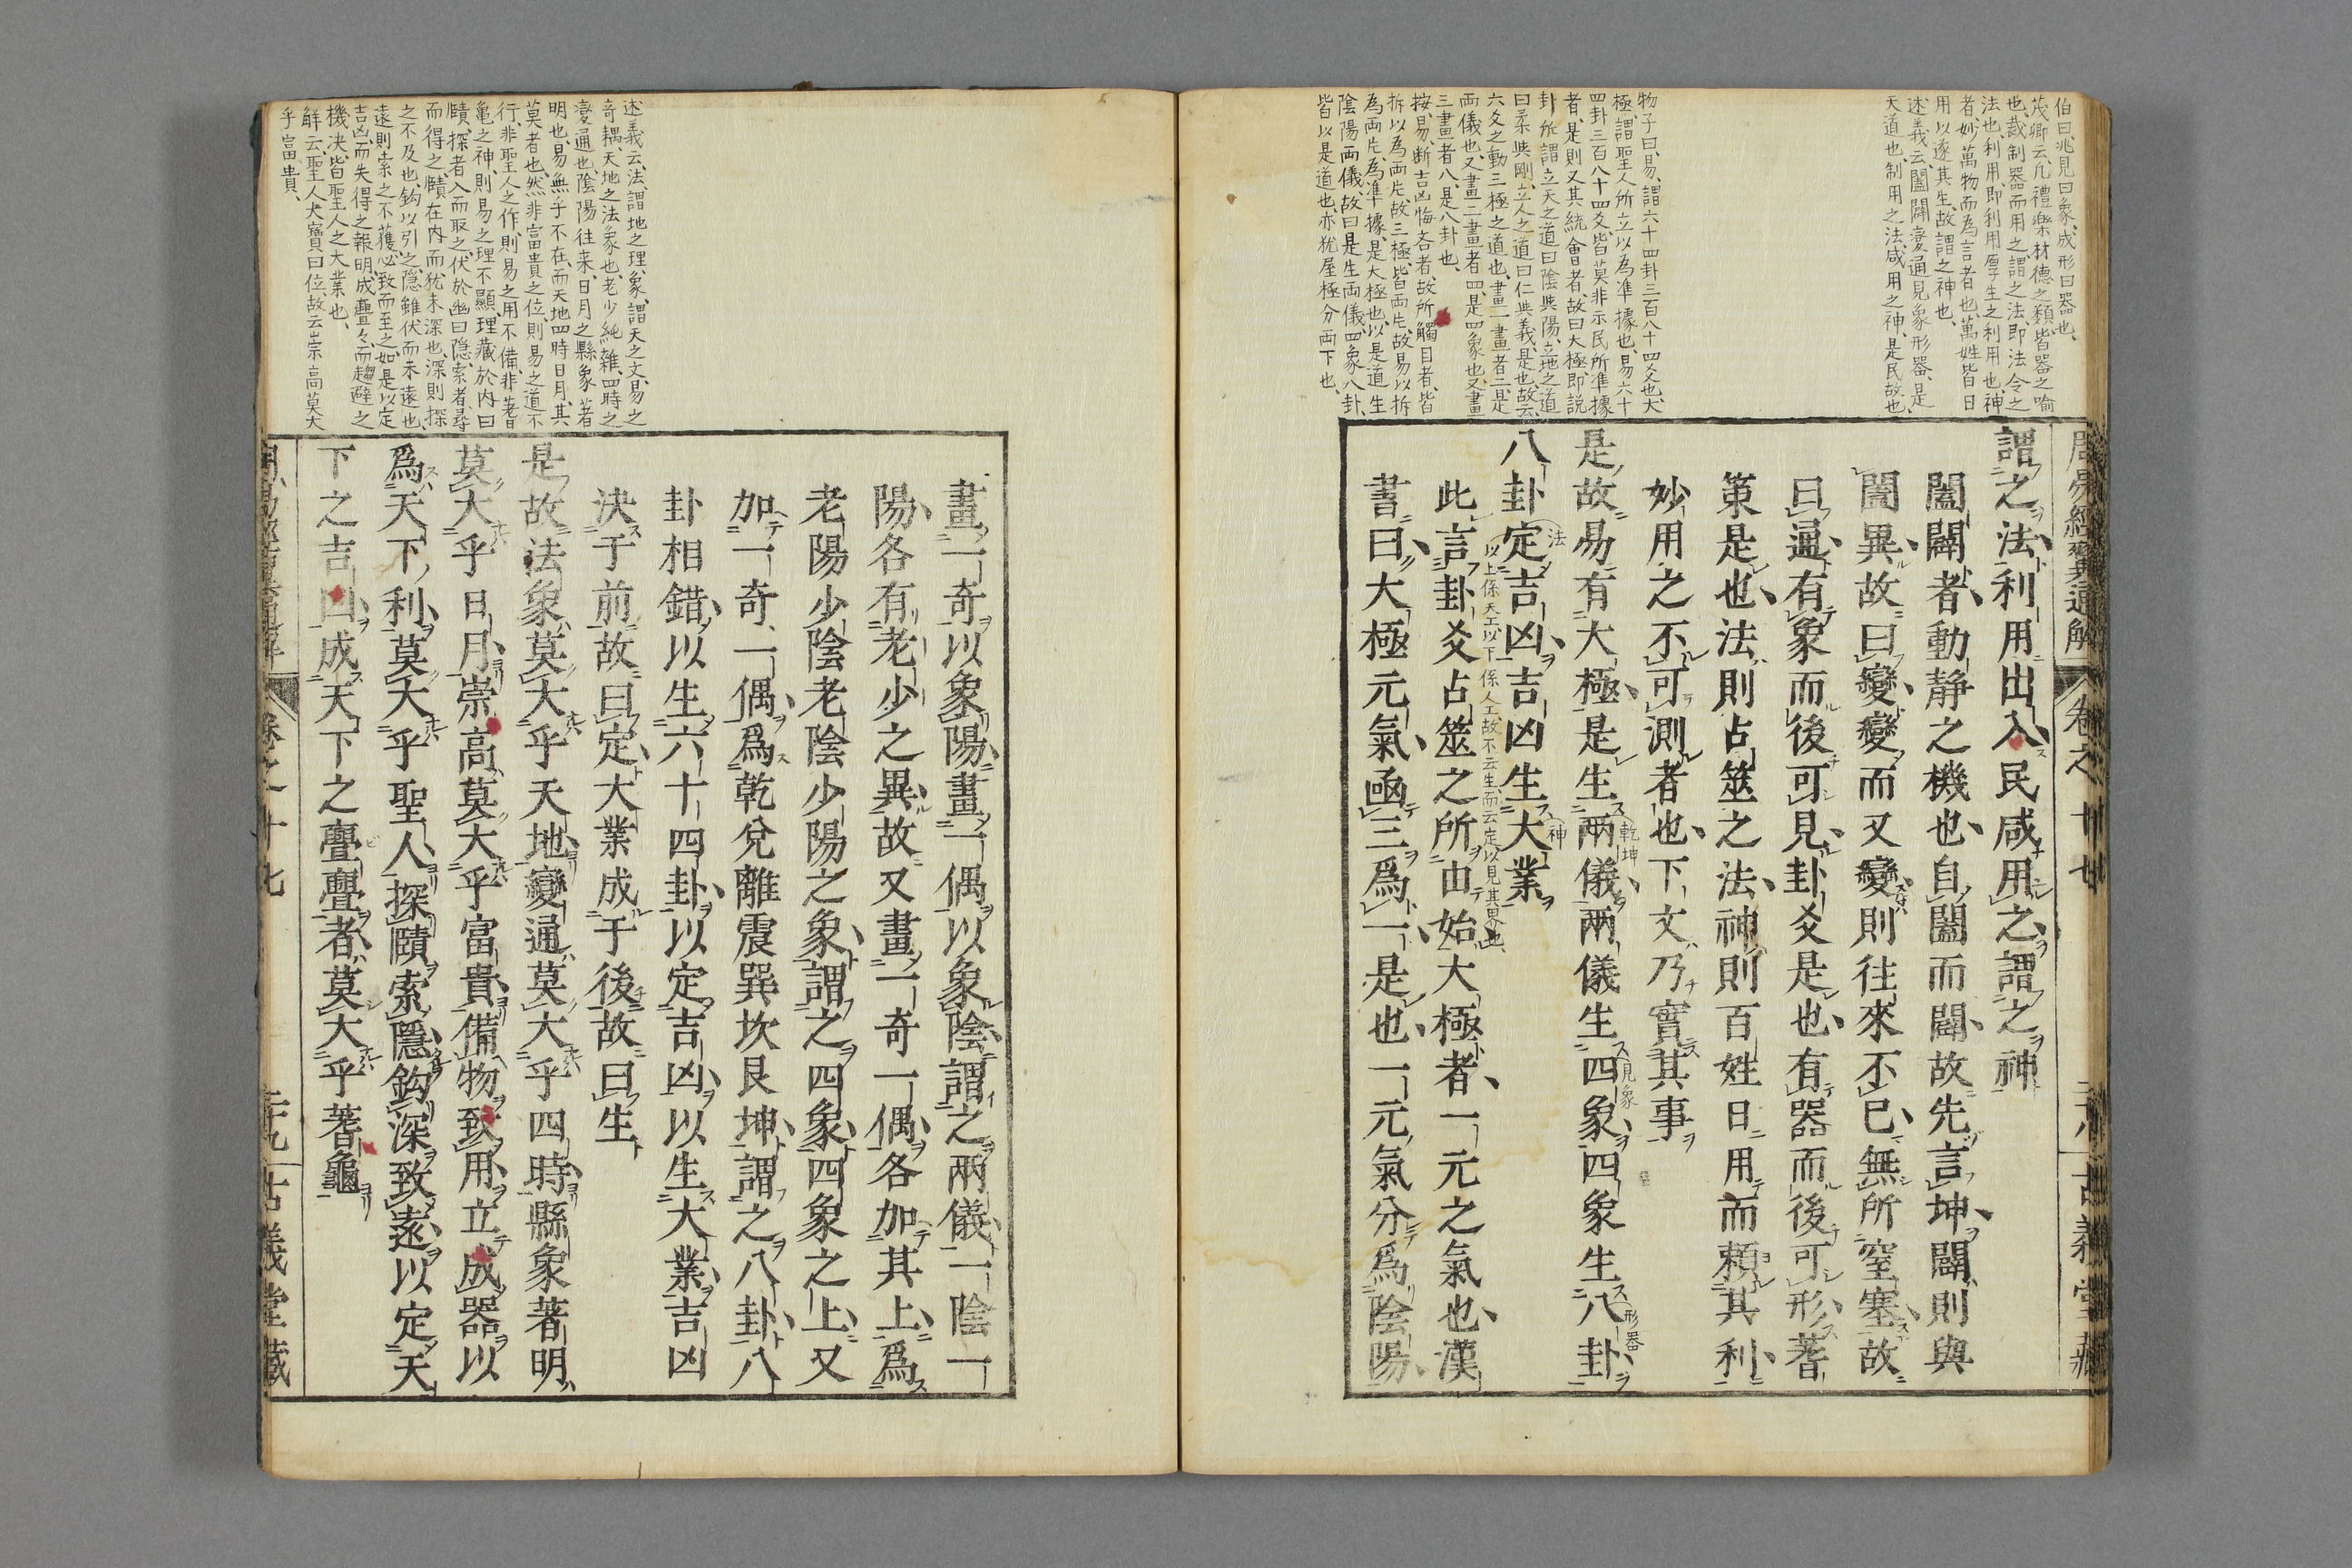 伯曰、兆見曰象、成形曰器也、
茂卿云、凡禮樂材德之類皆器之喻
也、裁制器而用之、謂之法、即法令之
法也、利用即利用厚生之利用也、神
者、妙萬物而為言者也、萬姓皆日
用以遂其生、故謂之神也、
述義云、闔闢變通見象形器、是
天道也、制用之法、咸用之神、是民故也、
物子曰、易、謂六十四卦三百八十四爻也、大
極、謂聖人所立以為準據也、易六十
四卦三百八十四爻、皆莫非示民所準據
者、是則又其統會者、故曰大極、即説
卦所謂立天之道曰陰與陽、立地之道
曰柔與剛、立人之道曰仁與義、是也、故云、
六爻之動三極之道也、畫一畫者二、是
兩儀也、又畫二畫者四、是四象也、又畫
三畫者八、是八卦也、
按、易、断吉凶悔吝者、故所觸目者、皆
拆以為兩片、故三極、皆兩片、故易以拆
為兩片、為準據、是大極也、以是道生
陰陽兩儀、故曰是生兩儀、四象八卦、
皆以是道也、亦猶屋極分兩下也、
周易經翼通解 卷之十七 古義堂藏
謂之法利用出入民咸用之謂之神
闔闢者動靜之機也自闔而闢故先言坤闢則與
闔異故曰變變而又變則往來不已無所窒塞故
曰通有象而後可見卦爻是也有器而後可形蓍
策是也法則占筮之法神則百姓日用而賴其利
妙用之不可測者也下文乃實其事
是故易有大極是生兩儀兩儀生四象四象生八卦
乾坤 見象 形器
八卦定吉凶吉凶生大業
法 神
以上係天工、以下係人工、故不云生、而云定、以見其界也、
此言卦爻占筮之所由始大極者一元之氣也漢
書曰大極元氣函三爲一是也一元氣分爲陰陽
畫一奇以象陽畫一偶以象陰謂之兩儀一陰一
陽各有老少之異故又畫一奇一偶各加其上爲
老陽少陰老陰少陽之象謂之四象四象之上又
加一奇一偶爲乾兌離震巽坎艮坤謂之八卦八
卦相錯以生六十四卦以定吉凶以生大業吉凶
決于前故曰定大業成于後故曰生
是故法象莫大乎天地變通莫大乎四時縣象著明
莫大乎日月崇高莫大乎富貴備物致用立成器以
爲天下利莫大乎聖人探賾索隱鈎深致遠以定天
下之吉凶成天下之亹亹者莫大乎蓍龜
周易經翼通解 卷之十七 古義堂藏
述義云、法、謂地之理、象、謂天之文、易之
奇耦、天地之法象也、老少純雜、四時之
變通也、陰陽往来、日月之縣象著
明也、易無乎不在、而天地四時日月、其
莫者也、然非富貴之位、則易之道不
行、非聖人之作、則易之用不備、非蓍
亀之神、則易之理不顯、理藏於内曰
賾、探者入而取之、伏於幽曰隠、索者、尋
而得之、賾在内而犹未深也、深則探
之不及也、鈎以引之、隠雖伏而未遠也、
遠則索之不獲、必致而至之、如是以定
吉凶、而失得之報明、成亹々、而趨避之
機決、皆聖人之大業也、
觧云、聖人大寳曰位、故云崇高莫大
乎富貴、